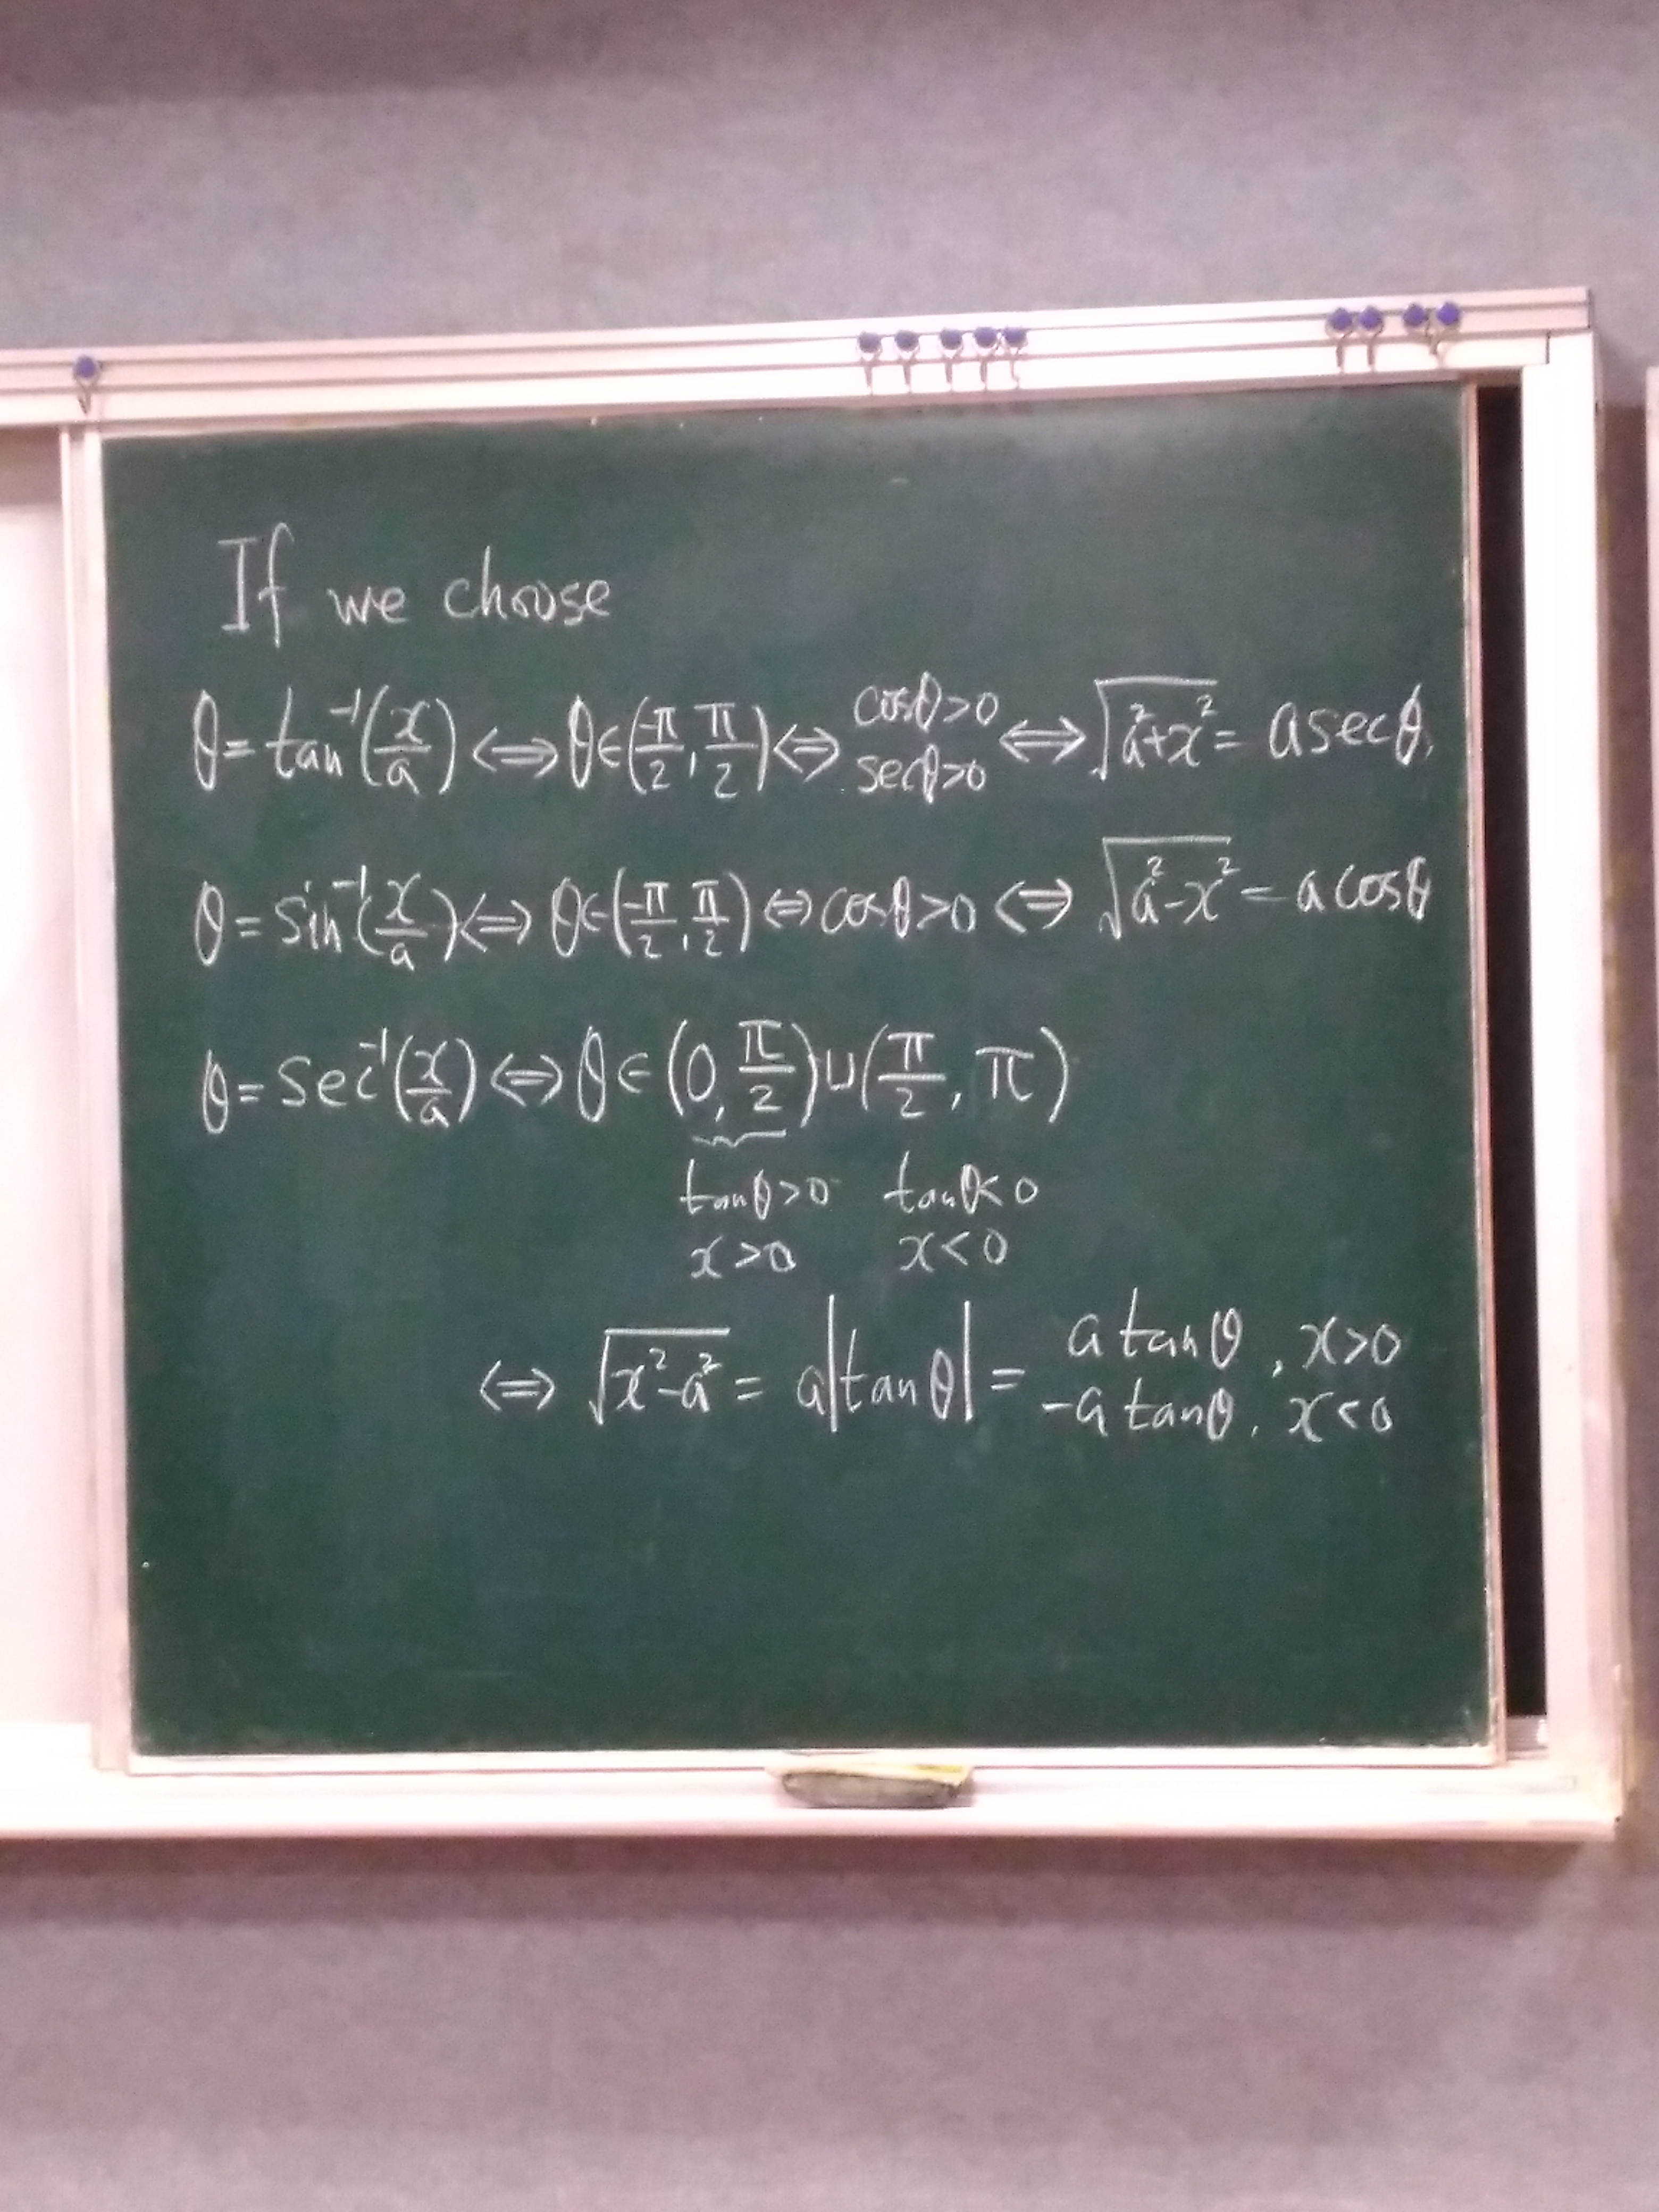 If we choose
θ = tan⁻¹(x/a) ⇔ θ ∈ (-π/2, π/2) ⇔ cosθ>0 secθ>0 ⇔ √(a²+x²) = a secθ,
θ = sin⁻¹(x/a) ⇔ θ ∈ (-π/2, π/2) ⇔ cosθ>0 ⇔ √(a²-x²) = a cosθ
θ = sec⁻¹(x/a) ⇔ θ ∈ (0, π/2) ∪ (π/2, π)
tanθ>0 tanθ<0
x>0 x<0
⇔ √(x²-a²) = a|tanθ| = a tanθ, x>0
-a tanθ, x<0